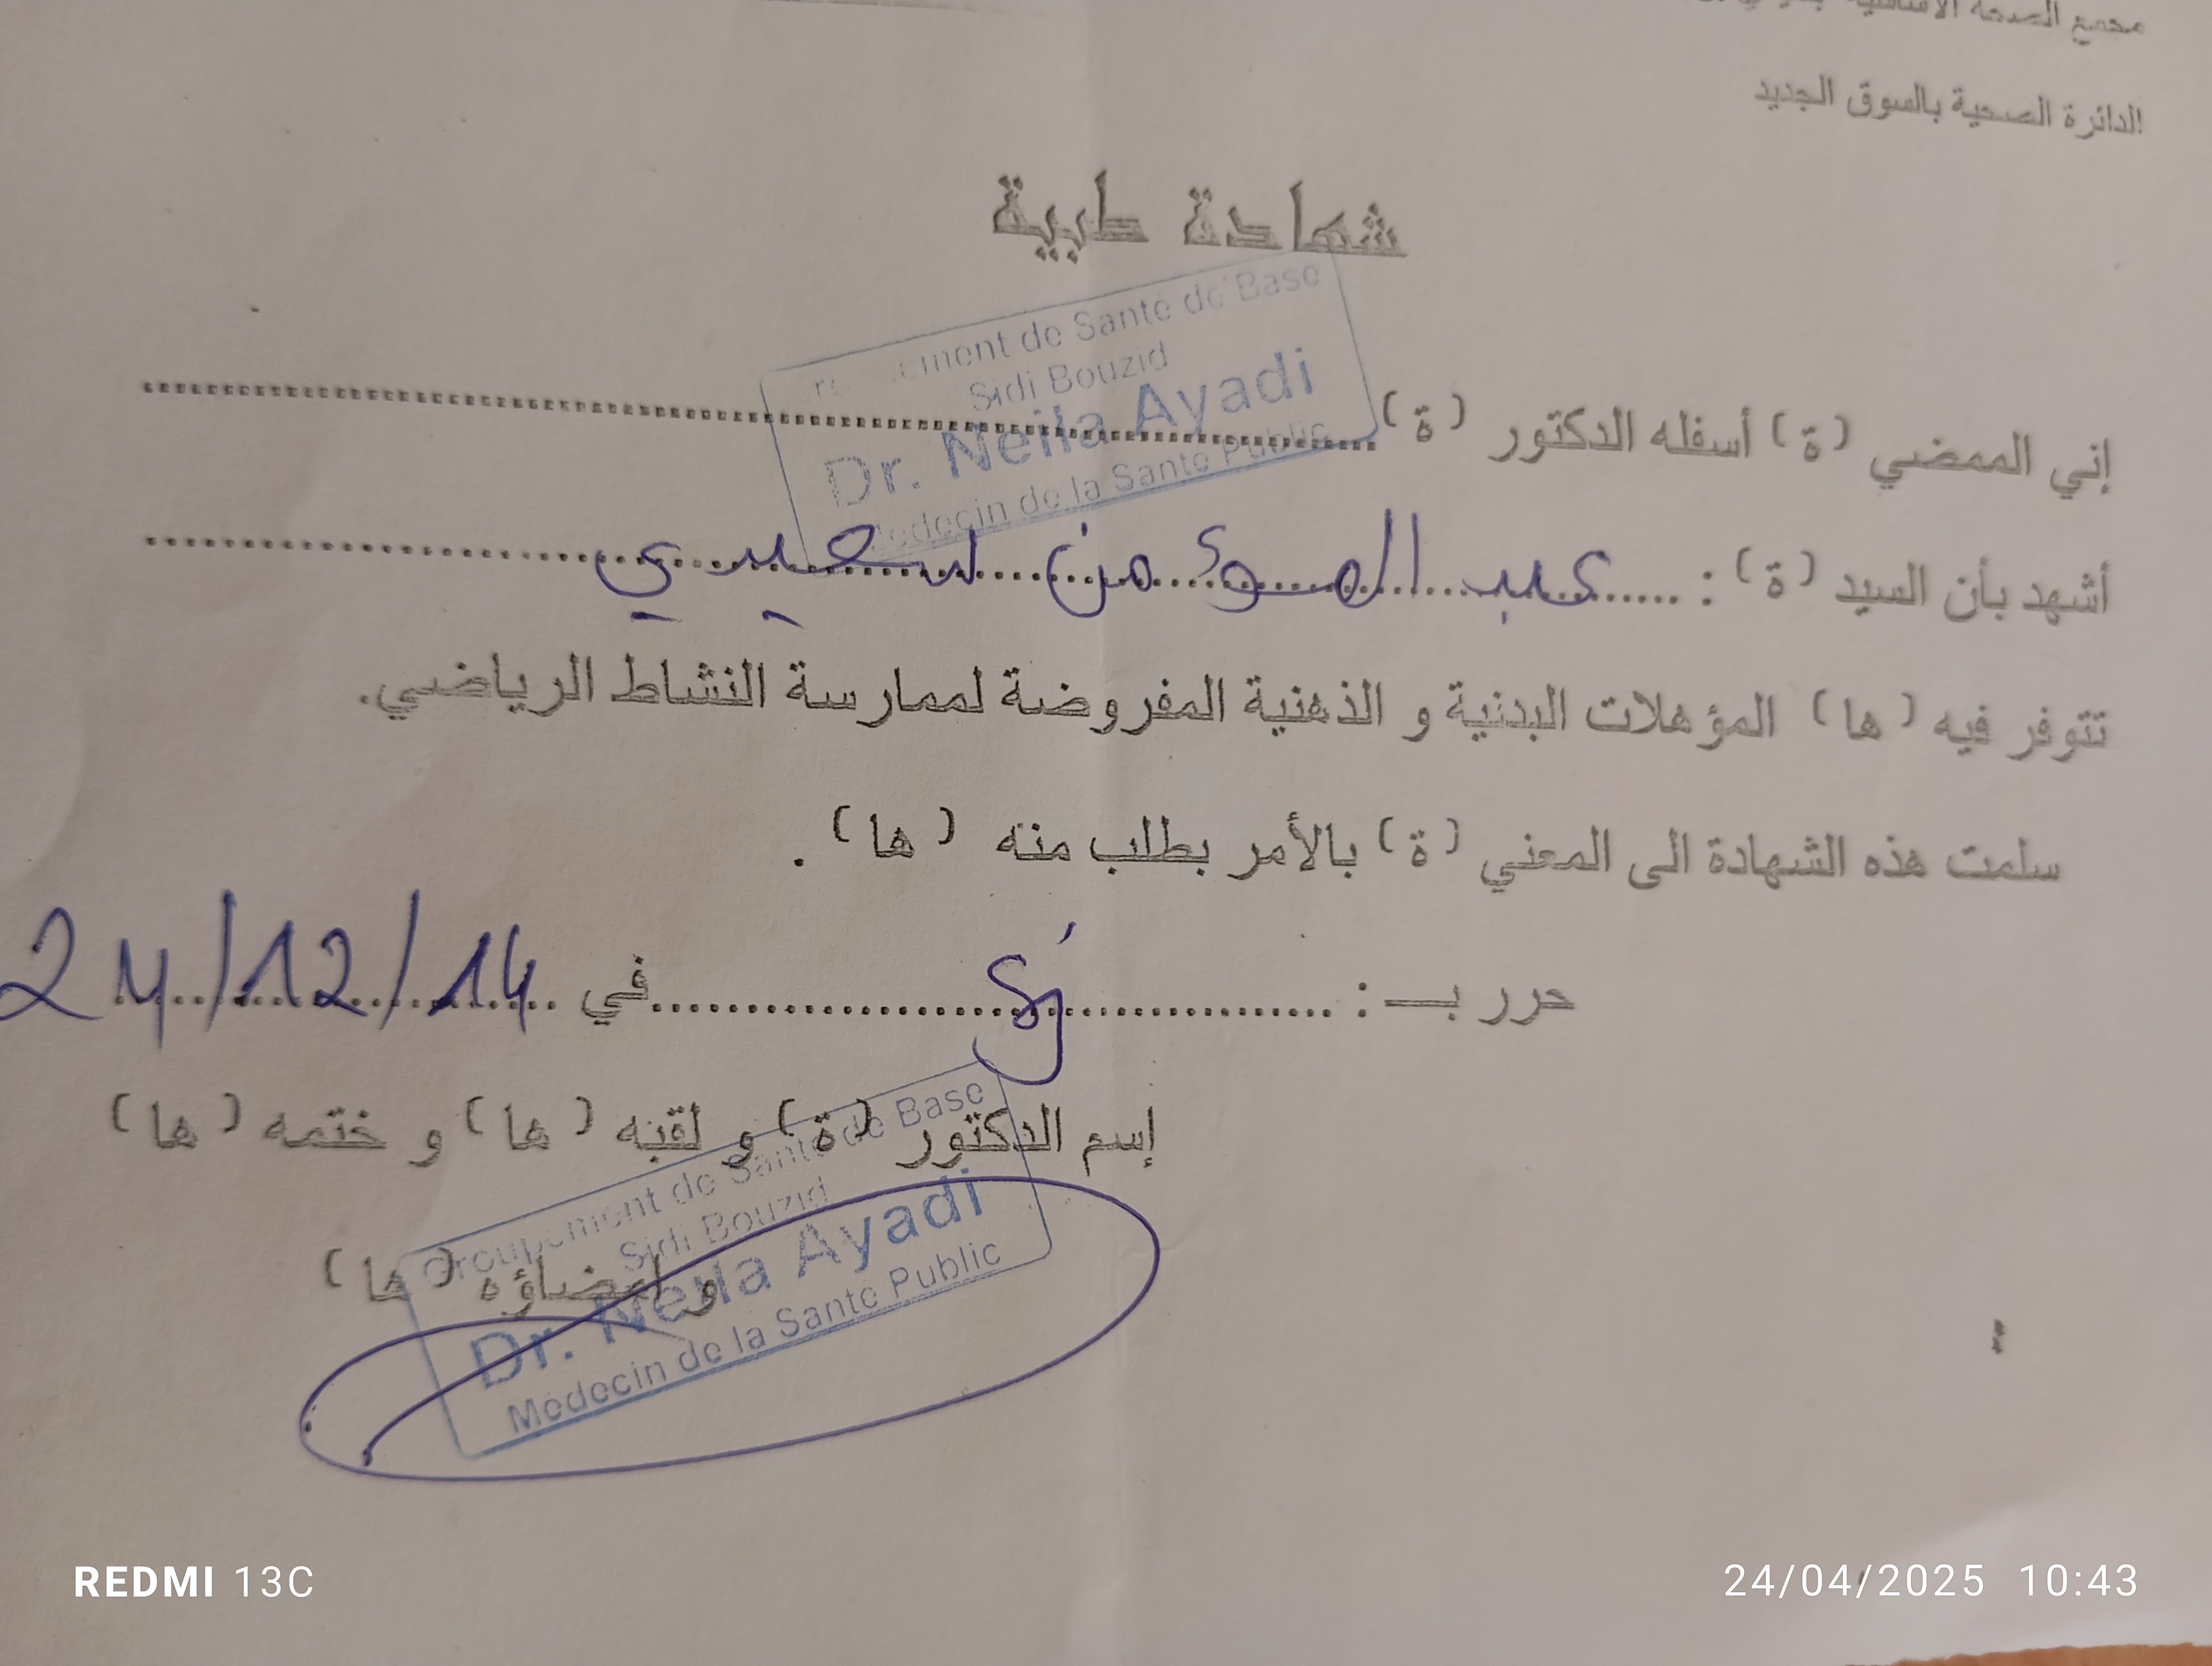 مجمع الصحة الأساسية
الدائرة الصحية بالسوق الجديد
شهادة طبية
Groupement de Sante de Base
Sidi Bouzid
Dr. Neila Ayadi
Medecin de la Sante Public
إني الممضي (ة) أسفله الدكتور (ة)
أشهد بأن السيد (ة) : عبد المؤمن سعيدي
تتوفر فيه (ها) المؤهلات البدنية و الذهنية المفروضة لممارسة النشاط الرياضي.
سلمت هذه الشهادة الى المعني (ة) بالأمر بطلب منه (ها) .
حرر بـ : في 24/12/14
إسم الدكتور (ة) و لقبه (ها) و ختمه (ها)
و امضاؤه (ها)
Groupement de Sante de Base
Sidi Bouzid
Dr. Neila Ayadi
Medecin de la Sante Public
REDMI 13C
24/04/2025 10:43